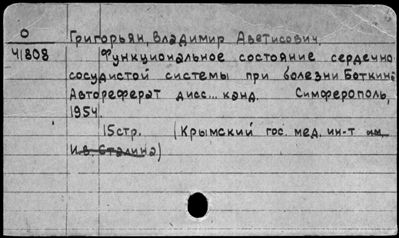 О
Григорьян, Владимир Аветисович
41808
Функциональное состояние сердечно-
сосудистой системы при болезни Боткина
Автореферат дисс... канд. Симферополь,
1954.
15стр. (Крымский гос. мед. ин-т им.
И.В. Сталина)